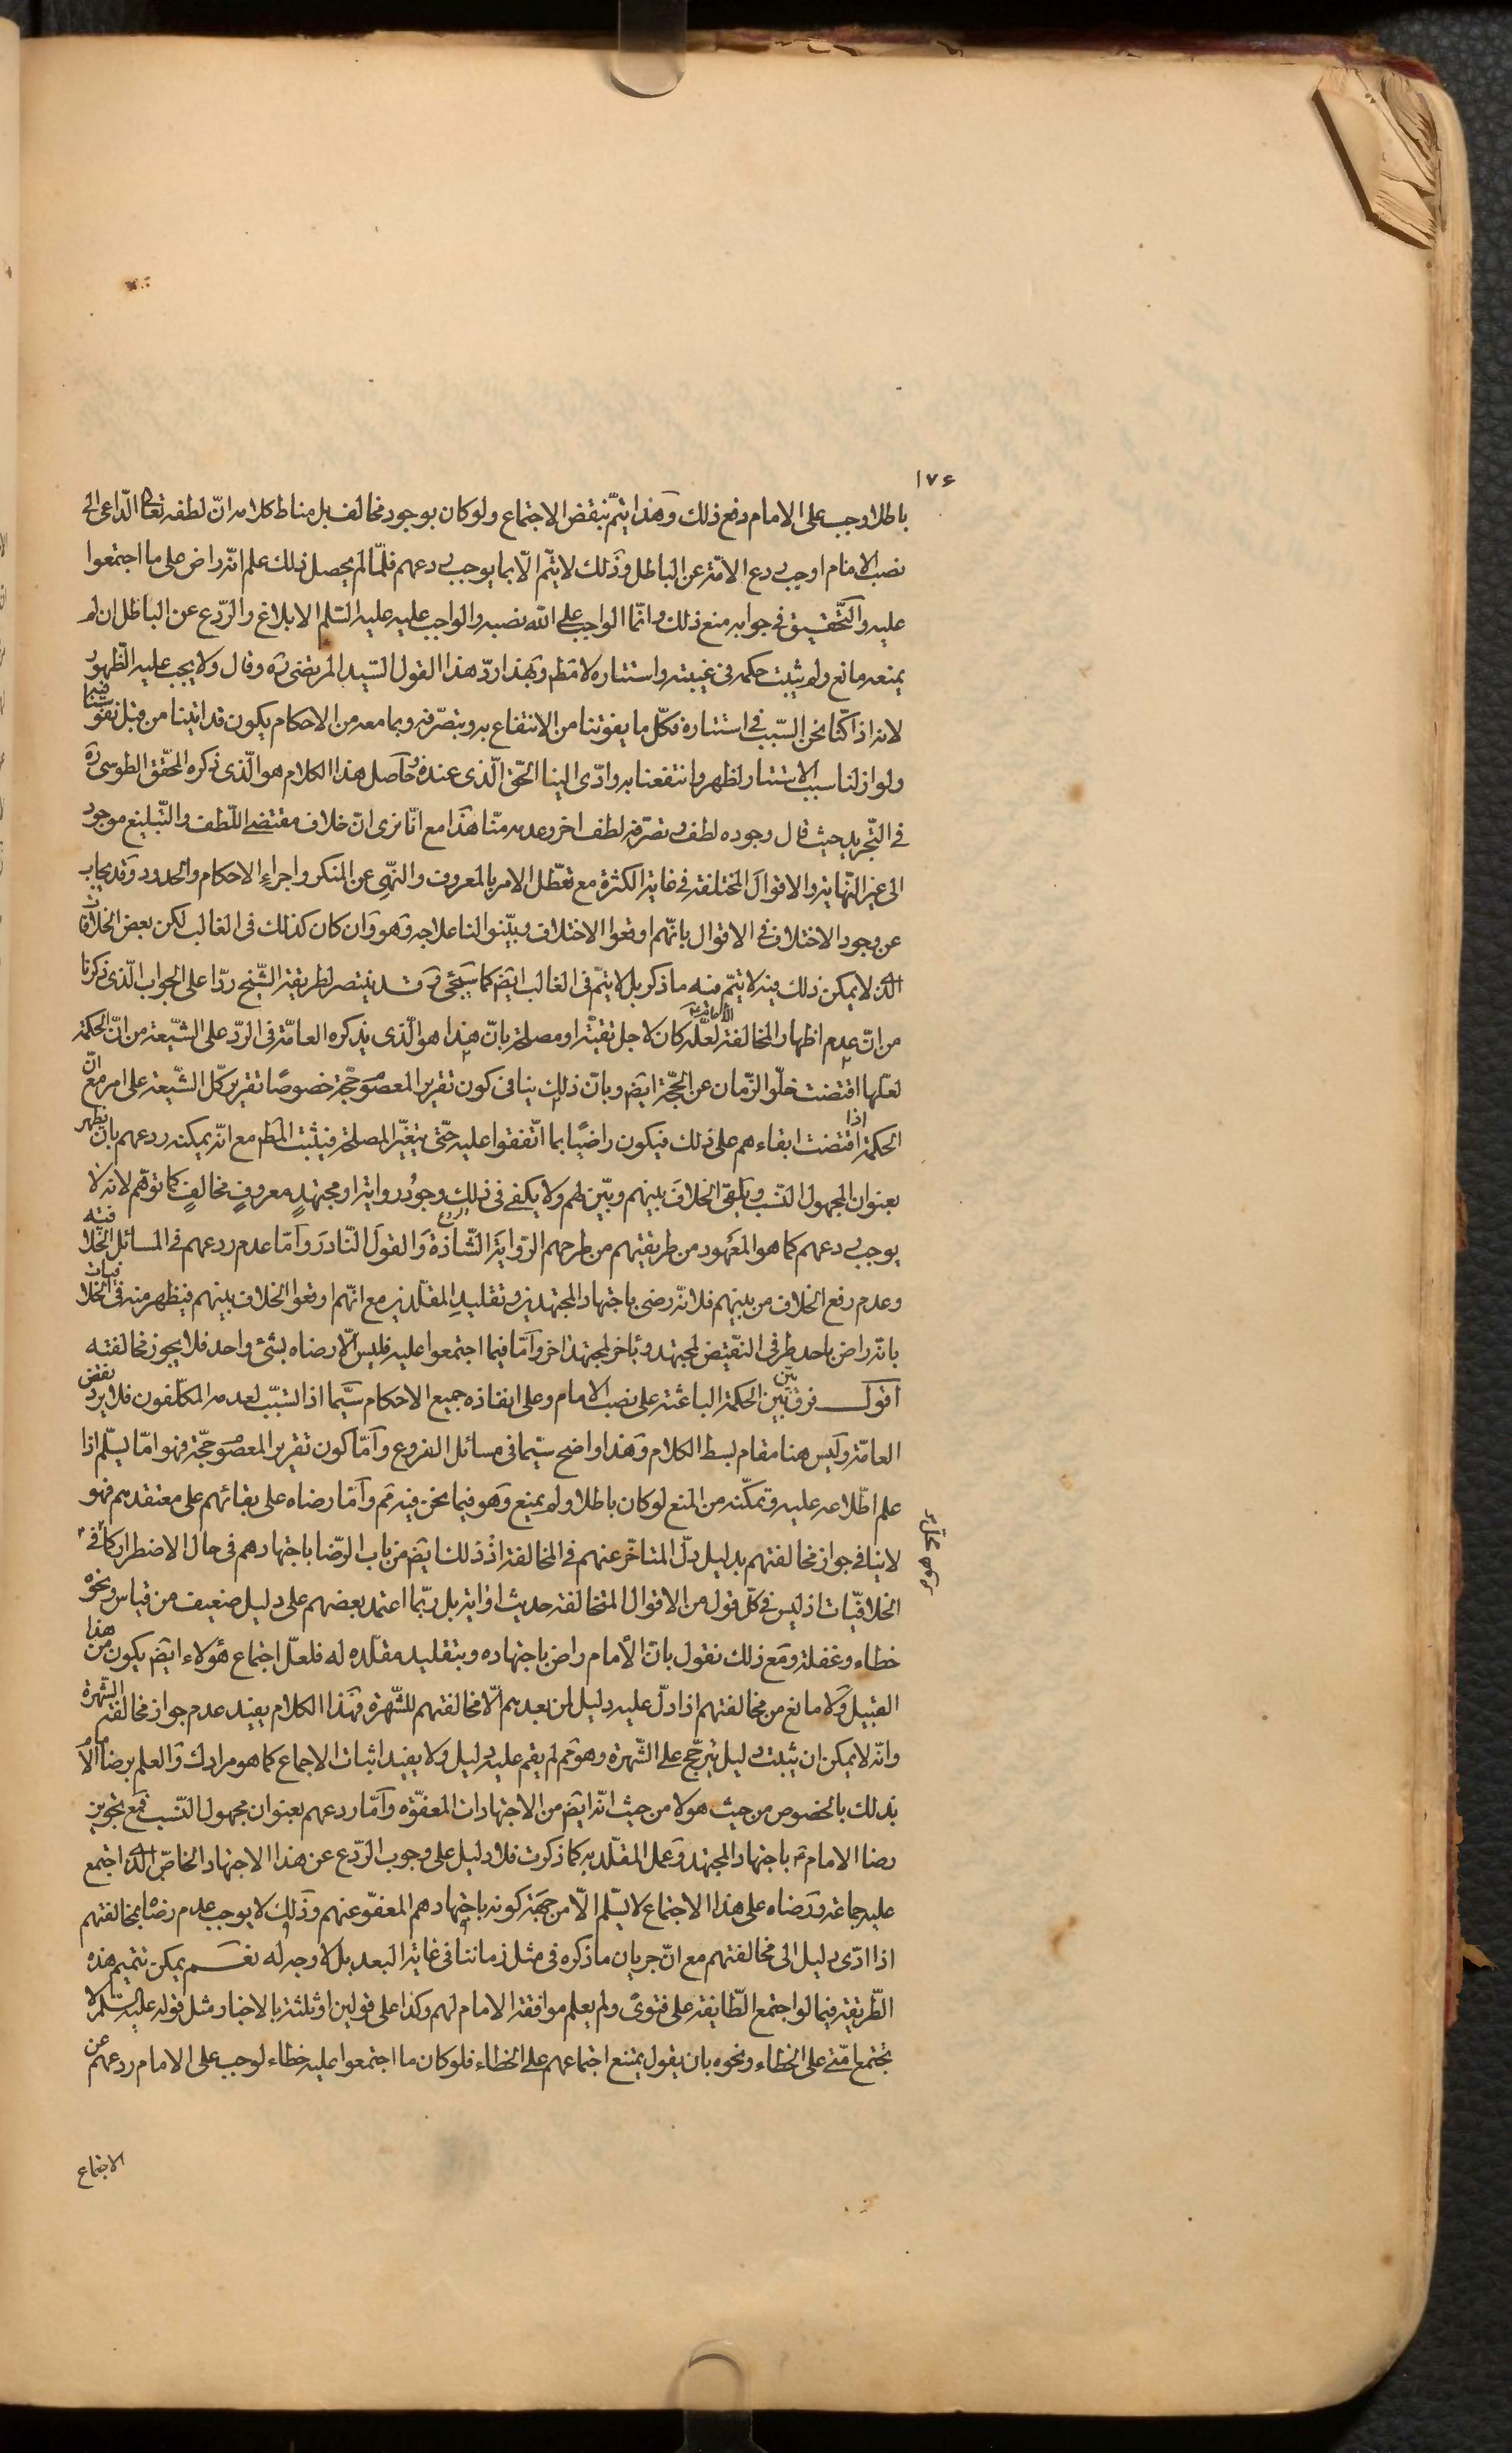 ١٧۶
باطلا وجب على الامام دفع ذلك وهذا يتم بنقض الاجتماع ولو كان بوجود مخالف بل مناط كلامه ان لطفه تعالى الداعى الى
نصب الامام اوجب ردع الامة عن الباطل وذلك لا يتم الا بما يوجب ردعهم فلما لم يحصل ذلك علم انه راض على ما اجتمعوا
عليه والتحقيق فى جوابه منع ذلك وانما الواجب على الله نصبه والواجب عليه عليه السلم الابلاغ والردع عن الباطل ان لم
يمنعه مانع ولم يثبت حكمه فى غيبته واستتاره لا مطم وبهذا رد هذا القول السيد المرتضى ره وقال ولا يجب عليه الظهور
لانه اذا كنا نحن السبب فى استتاره فكل ما يفوتنا من الانتفاع به وبتصرفه وبما معه من الاحكام يكون قد اتينا من قبل نفوسنا فيه
ولو ازلنا سبب الاستتار لظهر وانتفعنا به وادى الينا الحق الذى عنده وحاصل هذا الكلام هو الذى ذكره المحقق الطوسى ره
فى التجريد حيث قال وجوده لطف وتصرفه لطف اخر وعدمه منا هذا مع انا نرى ان خلاف مقتضى اللطف والتبليغ موجود
الى غير النهاية والاقوال المختلفة فى غاية الكثرة مع تعطل الامر بالمعروف والنهى عن المنكر واجراء الاحكام والحدود وقد يجاب
عن وجود الاختلاف فى الاقوال بانهم اوقعوا الاختلاف وبينوا لنا علاجه وهو وان كان كذلك فى الغالب لكن بعض الخلافات
الذى لا يمكن ذلك فيه لا يتم فيه ما ذكر بل لا يتم فى الغالب ايضم كما سيجئ وقد ينتصر لطريقة الشيخ ردا على الجواب الذى ذكرنا
من ان عدم اظهار المخالفة لعله كان لاجل تقية او مصلحة بان هذا هو الذى يذكره العامة فى الرد على الشيعة من ان الحكمة
لعلها اقتضت خلو الزمان عن الحجة ايضم وبان ذلك ينافى كون تقرير المعصوم حجة خصوصا تقرير كل الشيعة على امر مع ان
الحكمة اذا اقتضت ابقاءهم على ذلك فيكون راضيا بما اتفقوا عليه حتى يتغير المصلحة فيثبت المطم مع انه يمكنه ردعهم بان يظهر
بعنوان المجهول النسب ويلقى الخلاف بينهم ويبين لهم ولا يكفى فى ذلك وجود رواية او مجتهد معروف مخالف كما توهم لانه لا
يوجب ردعهم كما هو المعهود من طريقتهم من طرحهم الرواية الشاذة والقول النادر واما عدم ردعهم فى المسائل الخلافيه
وعدم رفع الخلاف من بينهم فلانه رضى باجتهاد المجتهدين وتقليد المقلدين مع انهم اوقعوا الخلاف بينهم فيظهر منه فى الخلافيات
بانه راض باحد طرفى النقيض لمجتهد وباخر لمجتهد اخر واما فيما اجتمعوا عليه فليس الا رضاه بشئ واحد فلا يجوز مخالفته
اقول فرق بين الحكمة الباعثة على نصب الامام وعلى انفاذه جميع الاحكام سيما اذا تسبب لعدمه المكلفون فلا يرد نقض
العامة وليس هنا مقام بسط الكلام وهذا واضح سيما فى مسائل الفروع واما كون تقرير المعصوم حجة فهو اما يسلم اذا
علم اطلاعه عليه وتمكنه من المنع لو كان باطلا ولم يمنع وهو فيما نحن فيه مم واما رضاه على بقائهم على معتقدهم فهو
لا ينافى جواز مخالفتهم بدليل دل المتاخر عنهم فى المخالفة اذ ذلك ايضم من باب الرضا باجتهادهم فى حال الاضطرار كما فى
الخلافيات اذ ليس فى كل قول من الاقوال المتخالفة حديث او اية بل ربما اعتمد بعضهم على دليل ضعيف من قياس ونحوه
خطاء وغفلة ومع ذلك نقول بان الامام راض باجتهاده وبتقليد مقلده له فلعل اجتماع هؤلاء ايضم يكون من هذا
القبيل ولا مانع من مخالفتهم اذا دل عليه دليل لمن بعدهم الا مخالفتهم للشهرة فهذا الكلام يفيد عدم جواز مخالفة الشهرة
وانه لا يمكن ان يثبت دليل يترجح على الشهرة وهو مم لم يقم عليه دليل ولا يفيد اثبات الاجماع كما هو مرادك والعلم برضا الامام
بذلك بالخصوص من حيث هو لا من حيث انه ايضم من الاجتهادات المعفوه واما ردعهم بعنوان مجهول النسب فمع تجويز
رضا الامام باجتهاد المجتهد وعمل المقلد به كما ذكرت فلا دليل على وجوب الردع عن هذا الاجتهاد الخاص الذى اجتمع
عليه جماعة ورضاه على هذا الاجتماع لا يسلم الا من جهة كونه باجتهادهم المعفو عنهم وذلك لا يوجب عدم رضاه بمخالفتهم
اذا ادى دليل الى مخالفتهم مع ان جريان ما ذكره فى مثل زماننا فى غاية البعد بل لا وجه له نعم يمكن تتميم هذه
الطريقة فيما لو اجتمع الطايفة على فتوى ولم يعلم موافقة الامام لهم وكذا على قولين او ثلثة بالاخبار مثل قوله عليه السلم لا
تجتمع امتى على الخطاء ونحوه بان يقول يمتنع اجتماعهم على الخطاء فلو كان ما اجتمعوا عليه خطاء لوجب على الامام ردعهم عن
الاجتماع